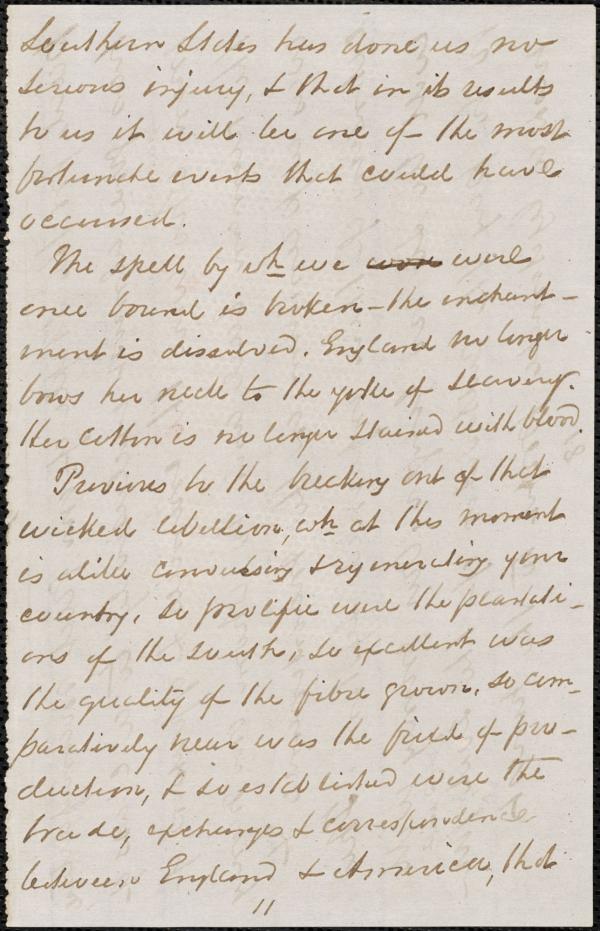 Southern States has done us no
serious injury, & that in its results
to us it will be one of the most
fortunate events that could have
occurred.
The spell by wh we were were
once bound is broken - the enchant-
ment is dissolved. England no longer
bows her neck to the yoke of slavery.
Her Cotton is no longer stained with blood.
Previous to the breaking out of that
wicked rebellion, wh at this moment
is alike convulsing & regenerating your
country, so prolific were the plantati-
ons of the South, so excellent was
the quality of the fibre grown, so com-
paratively near was the field of pro-
duction, & so established were the
trade, exchanges & correspondence
between England & America, that
11